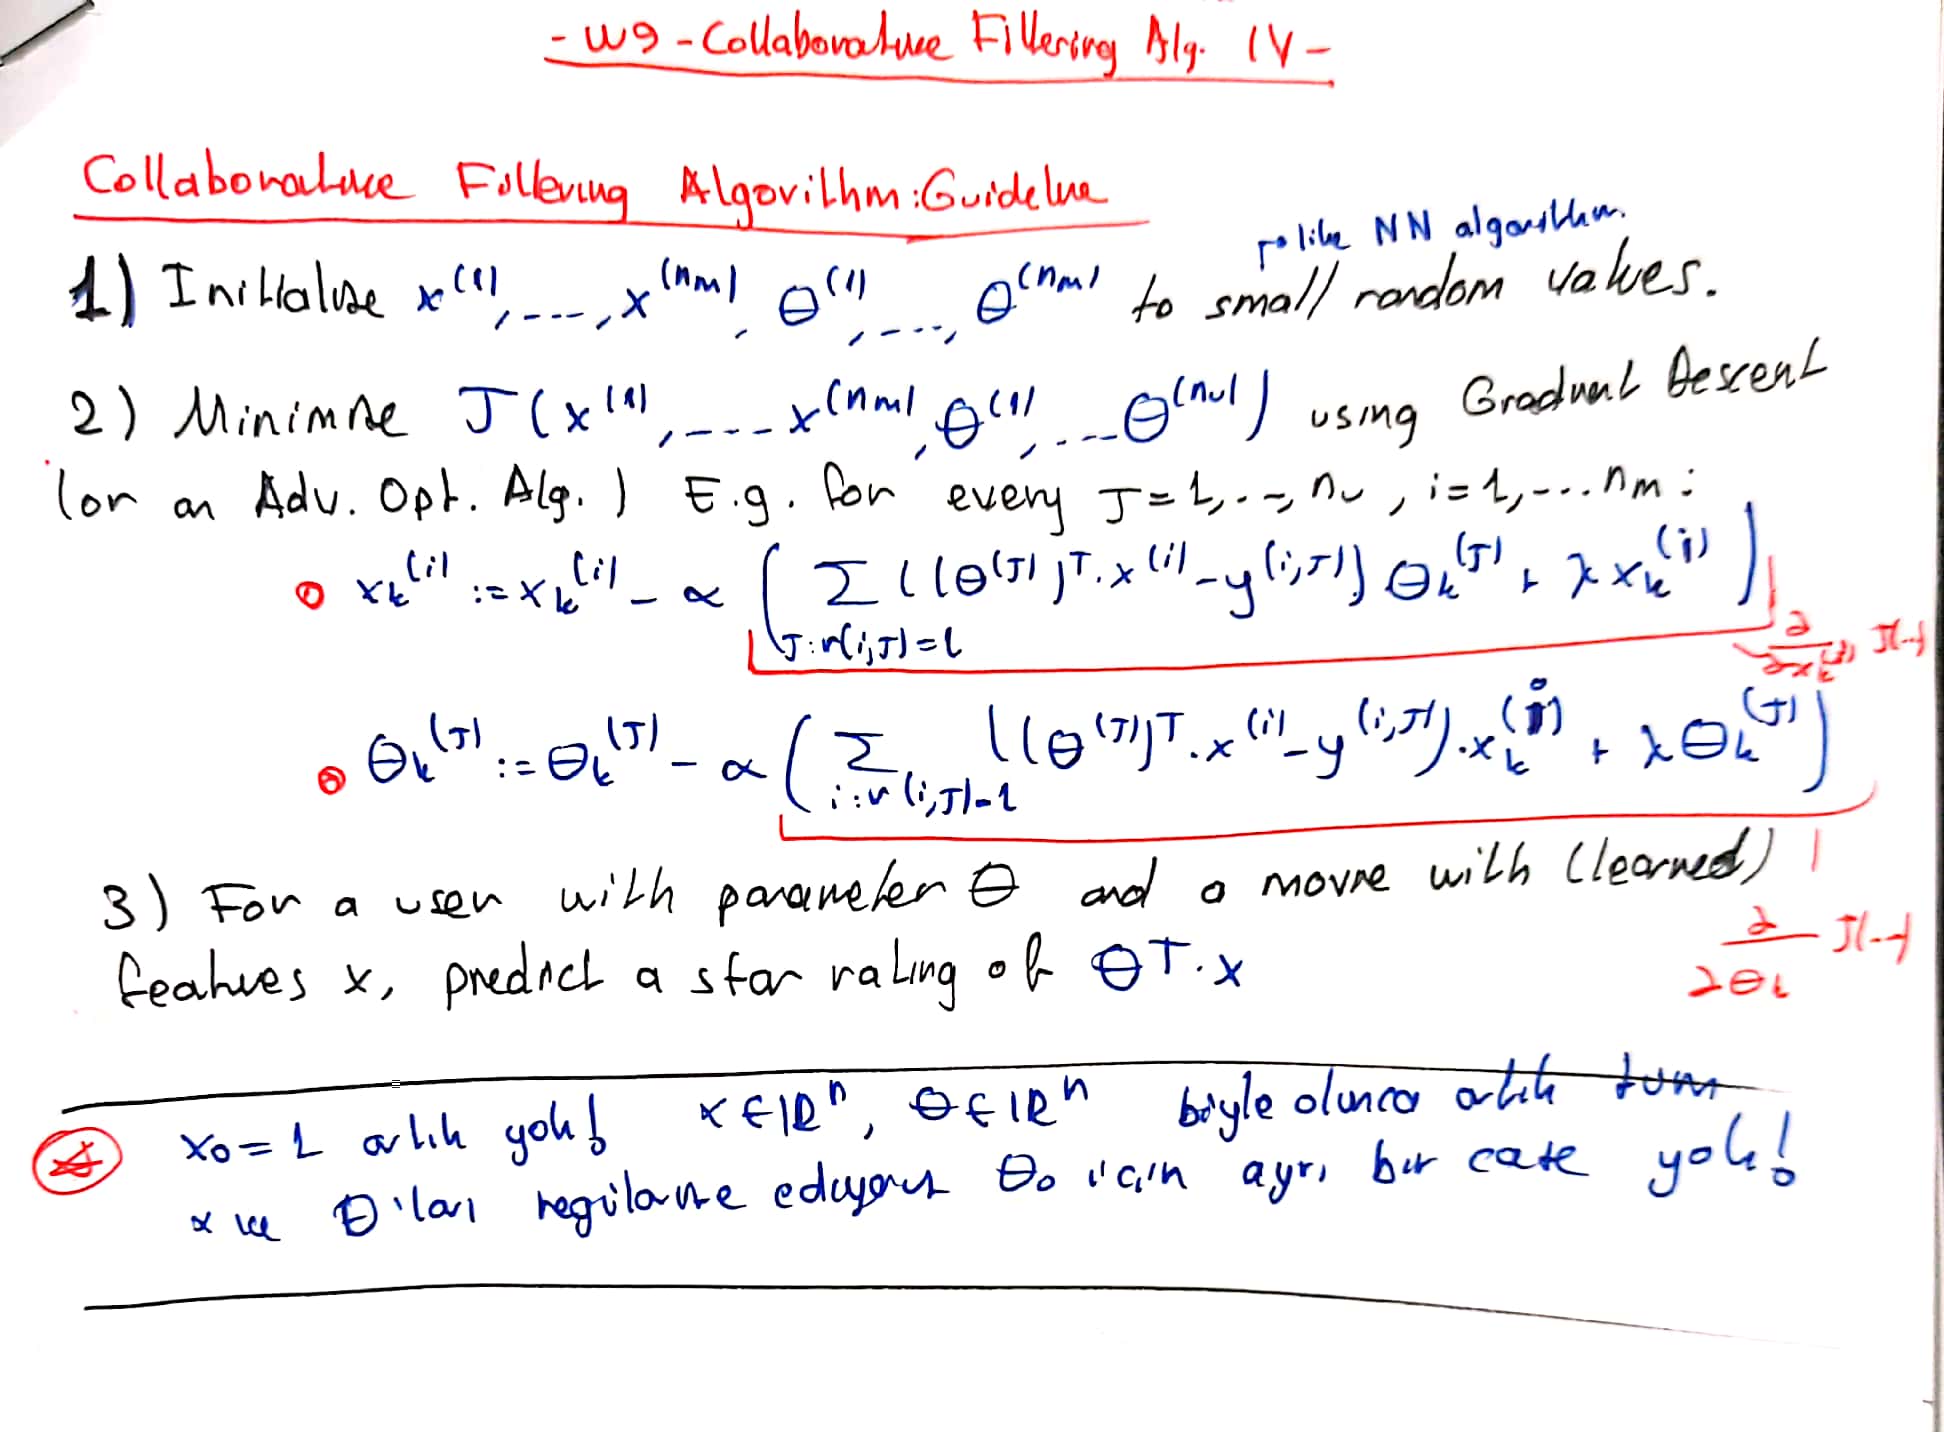 - W9 - Collaborative Filtering Alg. IV -
Collaborative Filtering Algorithm: Guideline
→ like NN algorithm.
1) Initialise x^(1), ..., x^(nm), θ^(1), ..., θ^(nm) to small random values.
2) Minimise J(x^(1), ... x^(nm), θ^(1), ... θ^(nu)) using Gradient Descent
(or an Adv. Opt. Alg.) E.g. for every J=1,..., nu, i=1,... nm:
x_k^(i) := x_k^(i) - α ( Σ_{J:r(i,J)=1} ((θ^(J))^T . x^(i) - y^(i,J)) θ_k^(J) + λ x_k^(i) )
∂/∂x_k^(i) J(...)
θ_k^(J) := θ_k^(J) - α ( Σ_{i:r(i,J)=1} ((θ^(J))^T . x^(i) - y^(i,J)) . x_k^(i) + λ θ_k^(J) )
3) For a user with parameter θ and a movie with (learned)
∂/∂θ_k J(...)
features x, predict a star rating of θ^T . x
x0 = 1 artık yok! x ∈ IR^n, θ ∈ IR^n böyle olunca artık tüm
x ve θ'ları regülarize ediyoruz θ0 için ayrı bir case yok!